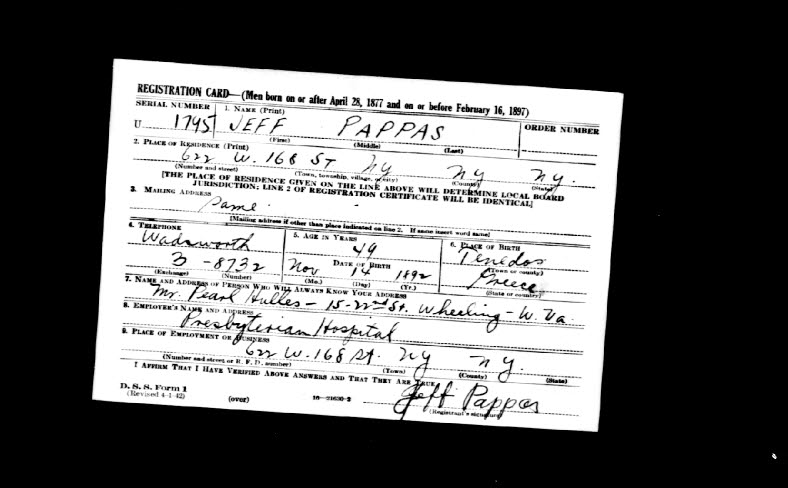 REGISTRATION CARD—(Men born on or after April 28, 1877 and on or before February 16, 1897)
SERIAL NUMBER 1. NAME (Print) ORDER NUMBER
U 1795 JEFF PAPPAS
(First) (Middle) (Last)
2. PLACE OF RESIDENCE (Print)
622 W. 168 ST NY NY NY.
(Number and street) (Town, township, village, or city) (County) (State)
[THE PLACE OF RESIDENCE GIVEN ON THE LINE ABOVE WILL DETERMINE LOCAL BOARD
JURISDICTION; LINE 2 OF REGISTRATION CERTIFICATE WILL BE IDENTICAL]
3. MAILING ADDRESS
Same
[Mailing address if other than place indicated on line 2. If same insert word same]
4. TELEPHONE 5. AGE IN YEARS 6. PLACE OF BIRTH
Wadsworth 49 Tenedos
DATE OF BIRTH (Town or county)
3-8732 Nov 14 1892 Greece
(Exchange) (Number) (Mo.) (Day) (Yr.) (State or country)
7. NAME AND ADDRESS OF PERSON WHO WILL ALWAYS KNOW YOUR ADDRESS
Mr. Pearl - 15-22nd St. Wheeling - W. Va
8. EMPLOYER'S NAME AND ADDRESS
Presbyterian Hospital
9. PLACE OF EMPLOYMENT OR BUSINESS
622 W. 168 St. NY NY.
(Number and street or R. F. D. number) (Town) (County) (State)
I AFFIRM THAT I HAVE VERIFIED ABOVE ANSWERS AND THAT THEY ARE TRUE
Jeff Pappas
D. S. S. Form 1
(Revised 4-1-42) (over) 16—21630-2 (Registrant's signature)